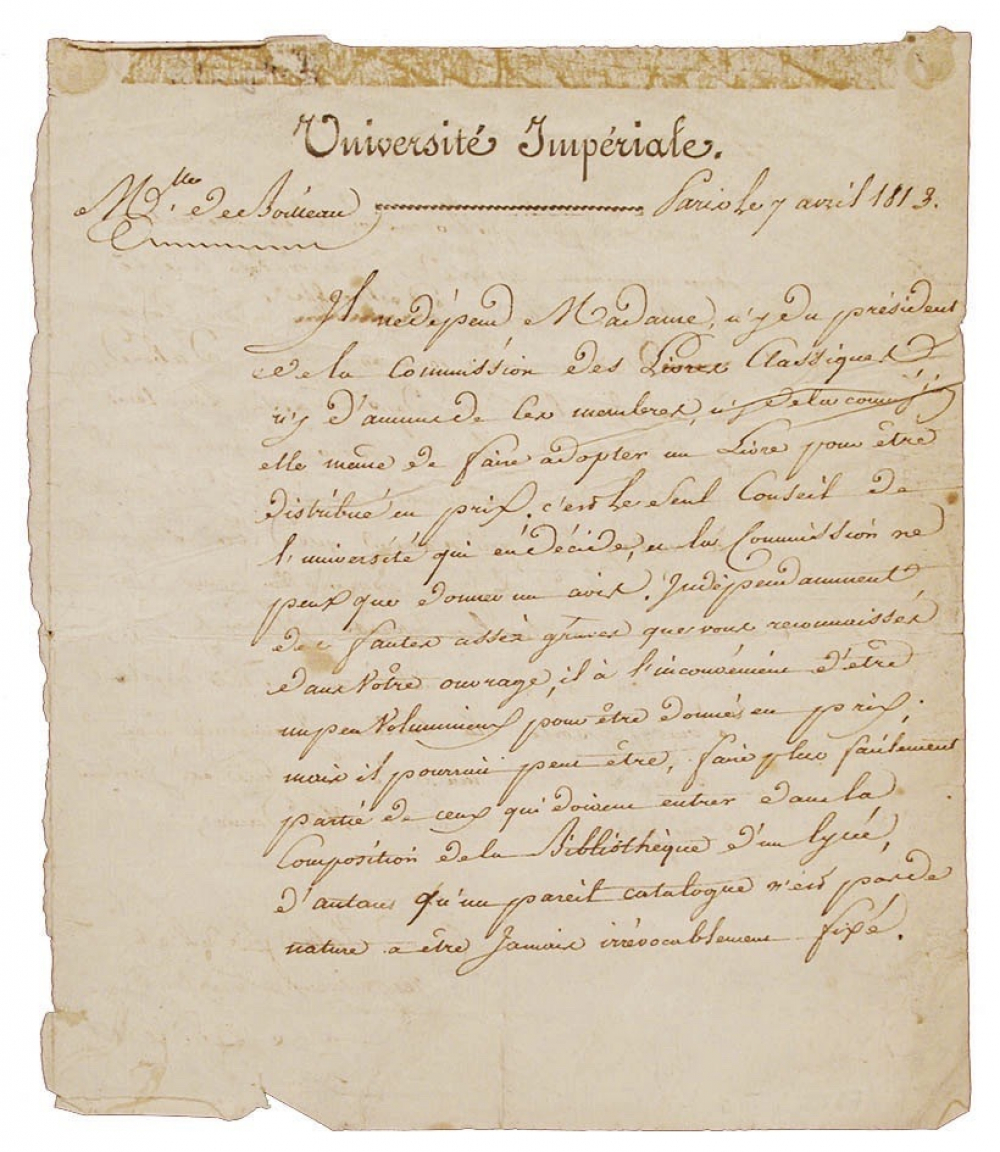 Université Impériale.
M.lle de Boilleau Paris le 7 avril 1813.
Il ne dépend Madame, n'y du président
de la Commission des Livres Classiques
n'y d'aucun de ses membres, n'y de la comm.on
elle même de faire adopter un Livre pour être
distribué en prix. c'est le seul Conseil de
l'université qui en décide, et la Commission ne
peut que donner un avis. Indépendamment
de fautes assèz graves que vous reconnaissés
dans Votre ouvrage, il à l'inconvénient d'être
un peu Volumineux pour être donnés en prix;
mais il pourrait peut être, faire plus facilement
partie de ceux qui doivent entrer dans la
Composition de la Bibliothèque d'un lycée,
d'autant qu'un pareil catalogue n'est pas de
nature a être Jamais irrévocablement fixé.